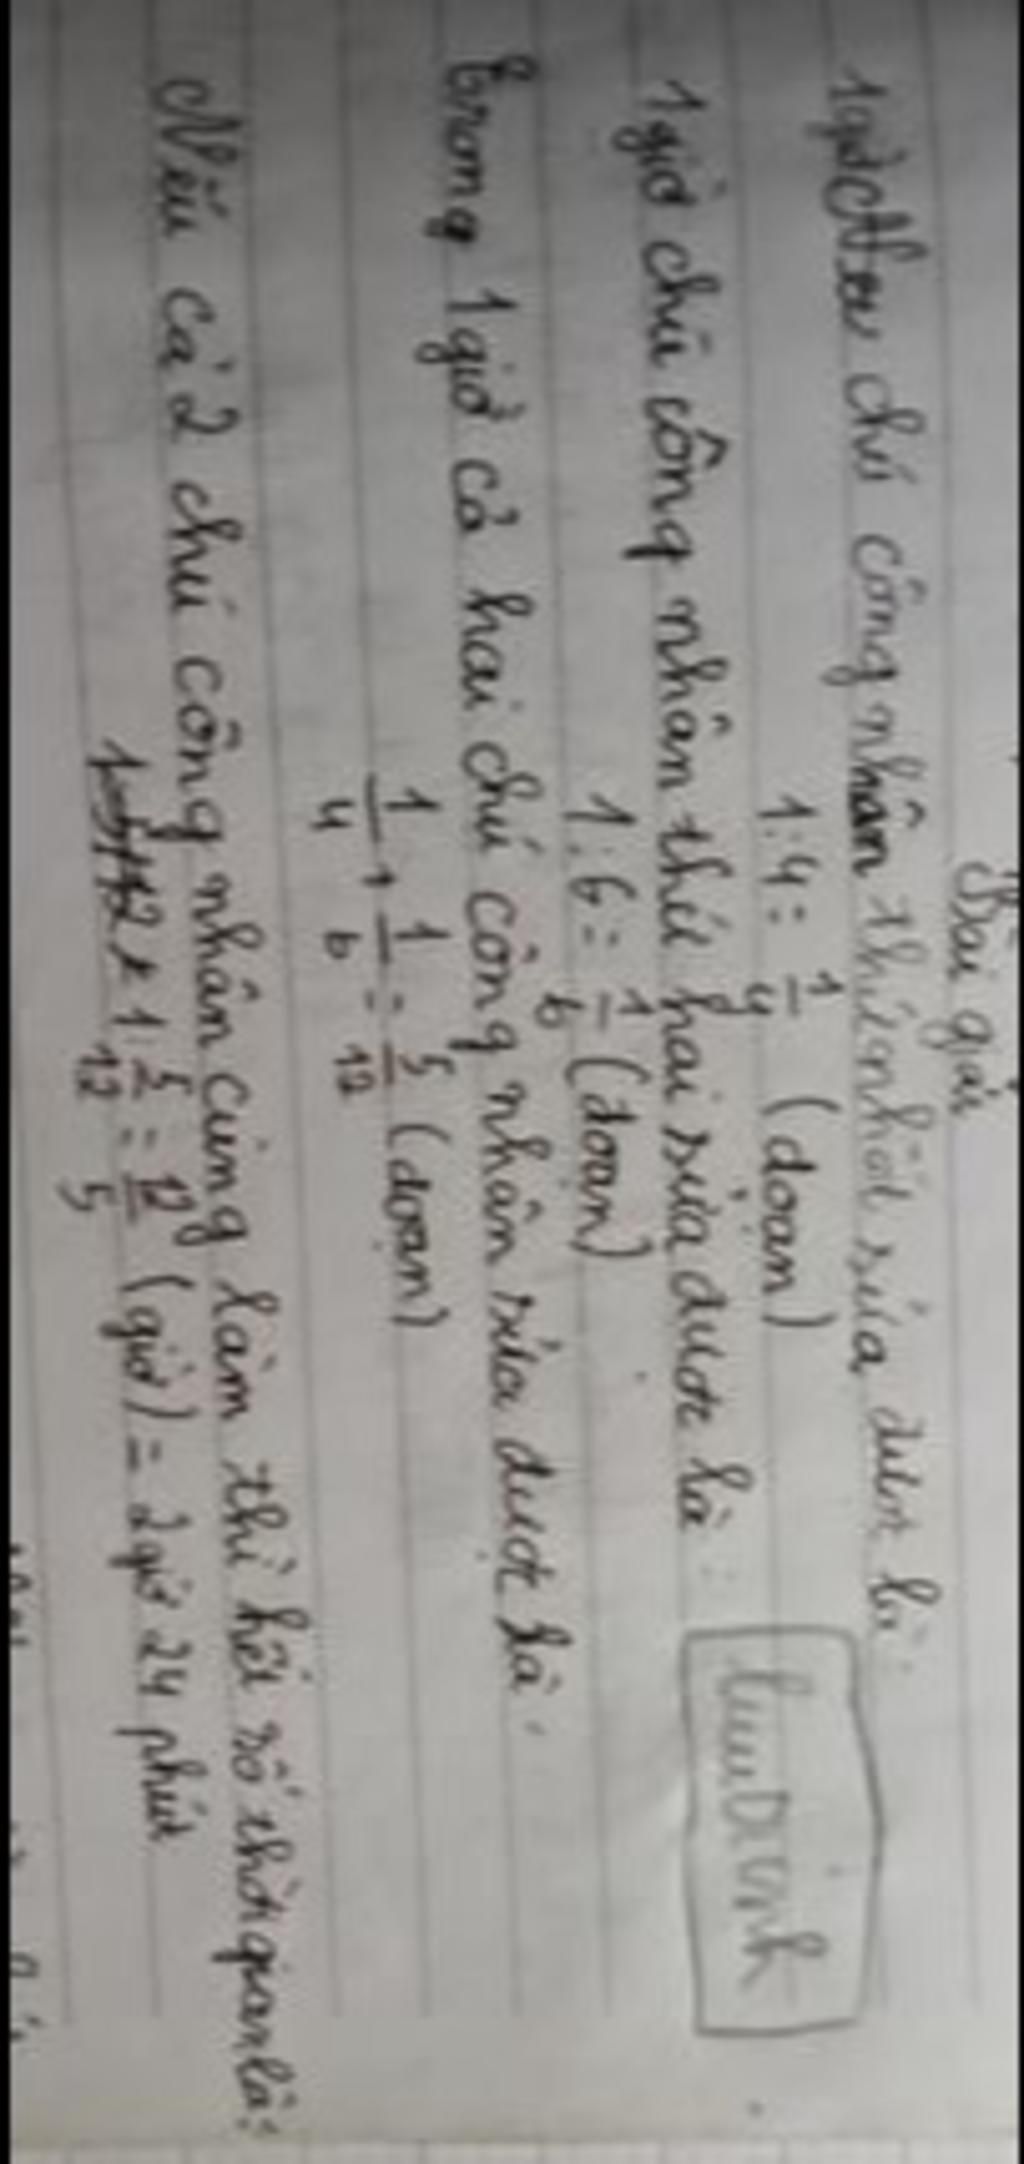 Bài giải
1 giờ chú công nhân thứ nhất sửa được là:
1:4 = 1/4 (đoạn)
1 giờ chú công nhân thứ hai sửa được là:
1:6 = 1/6 (đoạn)
Trong 1 giờ cả hai chú công nhân sửa được là:
1/4 + 1/6 = 5/12 (đoạn)
Nếu cả 2 chú công nhân cùng làm thì hết số thời gian là:
1: 5/12 = 12/5 (giờ) = 2 giờ 24 phút